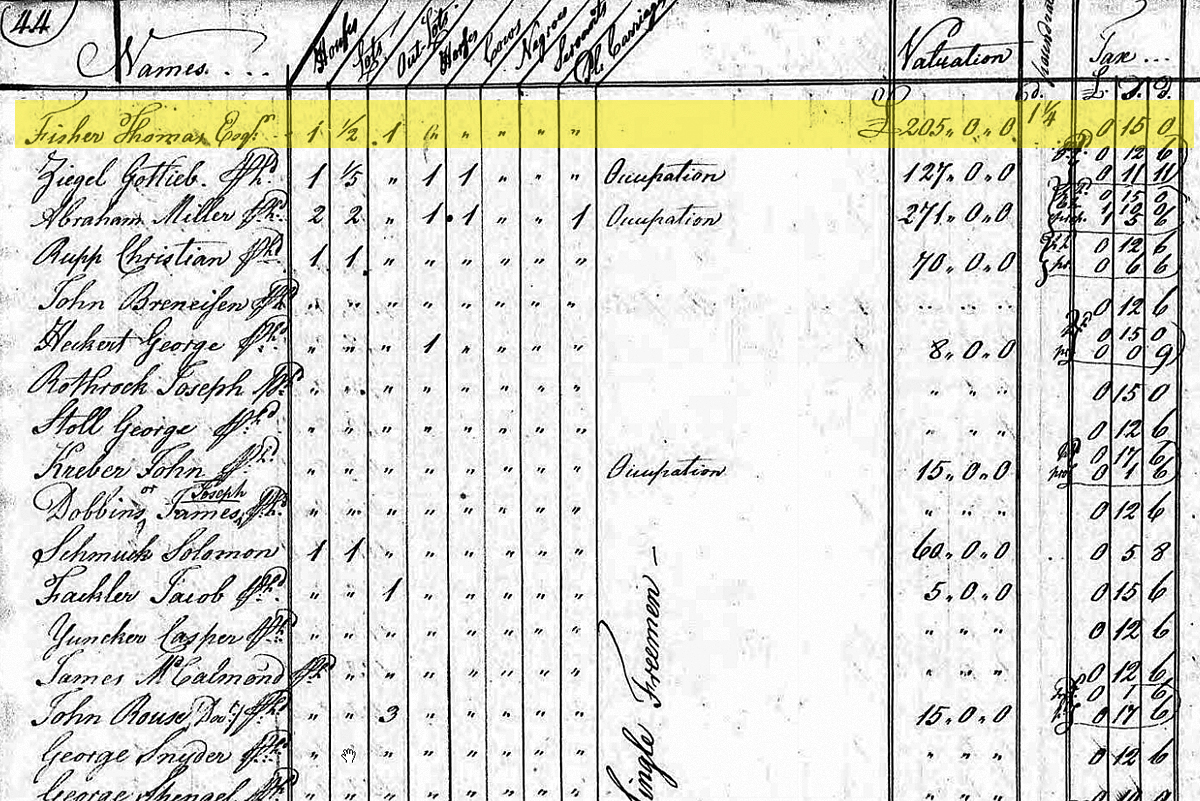 44
Names.... Houses Lots. Out-Lots. Horses Cows Negroes Servants Pl. Carriages Valuation Tax ...
d. £. S. D.
Fisher Thomas Esqr. 1 ½ 1 " " " " " £ 205 " 0 " 0 1¼ 0 15 0
Ziegel Gottlieb. fhd 1 ⅕ " 1 1 " " " Occupation 127 " 0 " 0 0 12 6 0 11 11
Abraham Miller fhd 2 2 " 1 1 " " 1 Occupation 271 " 0 " 0 0 15 0 1 5 6
Rupp Christian fhd 1 1 " " " " " " 70 " 0 " 0 0 12 6 0 6 6
John Breneisen fhd " " " " " " " " " " " 0 12 6
Heckert George fhd " " " 1 " " " " 8 " 0 " 0 0 15 0 0 0 9
Rothrock Joseph fhd " " " " " " " " " " " 0 15 0
Stoll George fhd " " " " " " " " " " " 0 12 6
Kreber John fhd " " " " " " " " Occupation 15 " 0 " 0 0 17 6 0 1 6
or Joseph
Dobbins James fhd " " " " " " " " " " " 0 12 6
Schmuck Solomon 1 1 " " " " " " 60 " 0 " 0 0 5 8
Fackler Jacob fhd " " 1 " " " " " 5 " 0 " 0 0 15 6
Yuncker Casper fhd " " " " " " " " " " " 0 12 6
James McCalmond fhd " " " " " " " " " " 0 12 6
John Rouse, Docr. fhd " " 3 " " " " " 15 " 0 " 0 0 1 6 0 17 6
George Snyder fhd " " " " " " " " " " 0 12 6
George Spengel fhd " " " " " " " " " " "
Single Freemen —